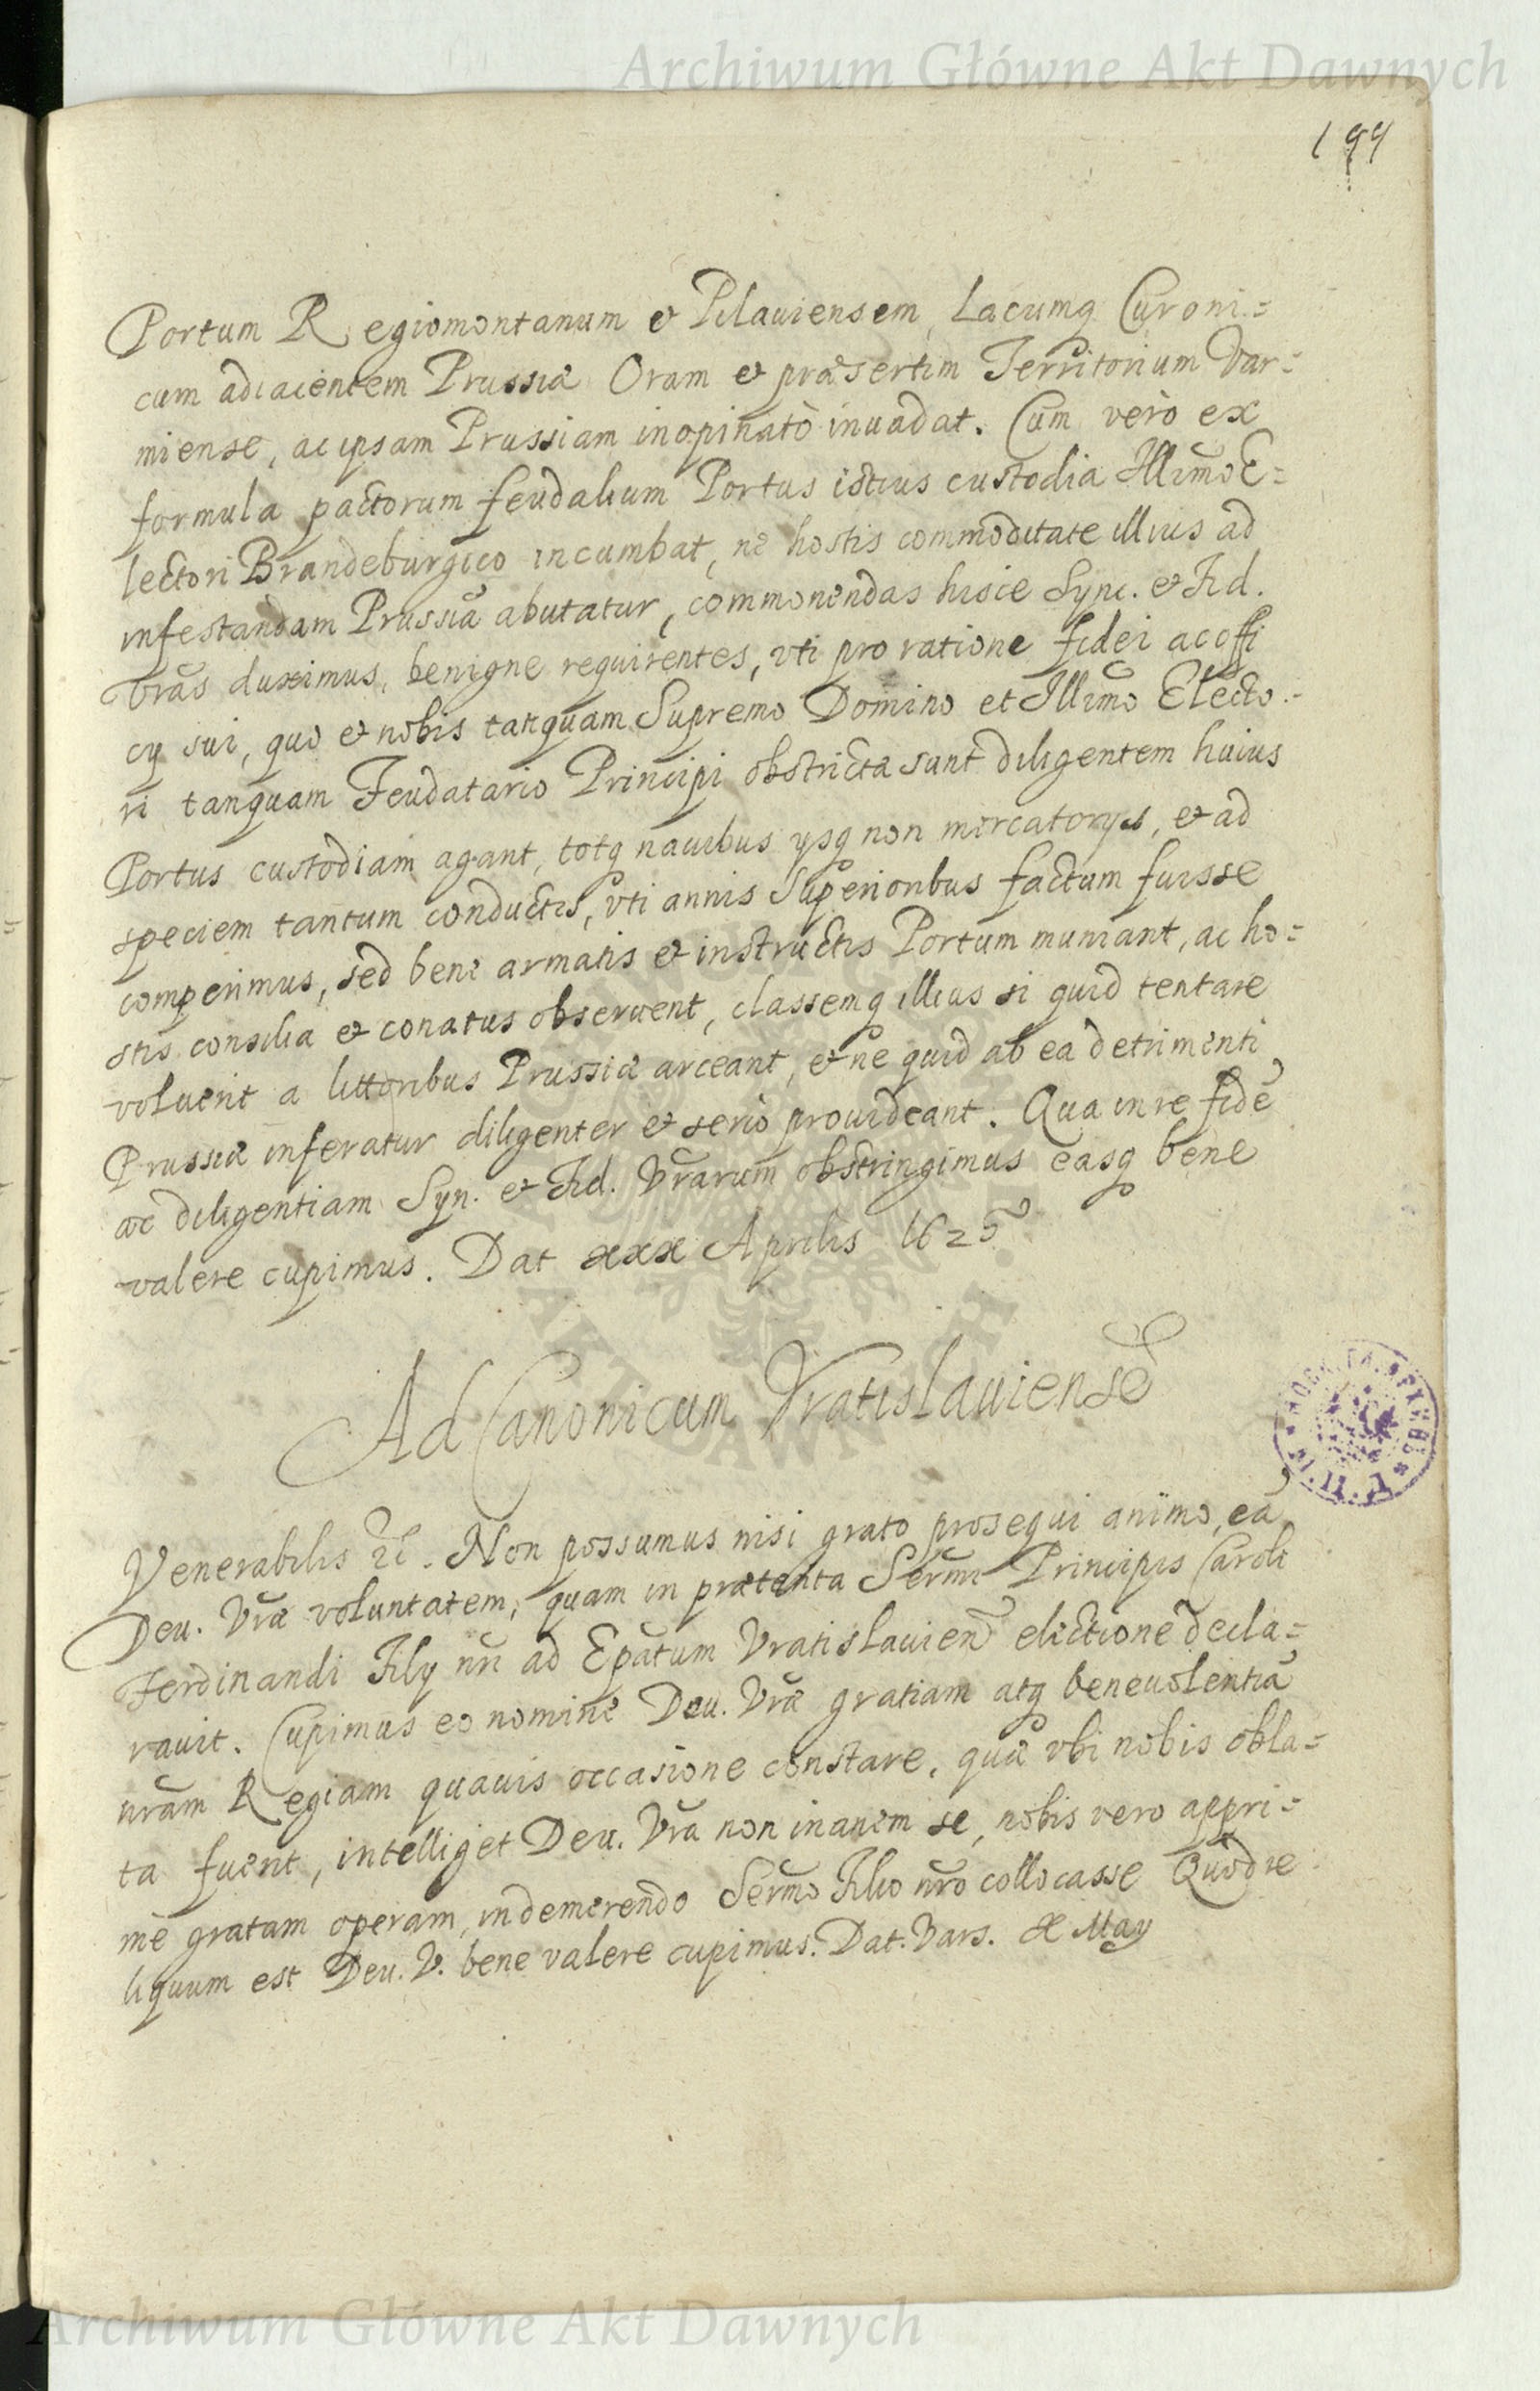 Archiwum Główne Akt Dawnych
199
Portum Regiomontanum et Pilauiensem, Lacumq Curoni=
cum adiacentem Prussiæ Oram et præsertim Territorium Var=
miense, ac ipsam Prussiam inopinatò inuadat. Cum verò ex
formula pactorum feudalium Portus istius custodia Illimo E=
lectori Brandeburgico incumbat, ne hostis commoditate illius ad
infestandam Prussiã abutatur, commonendas hisce Sync. et Fid.
Vrãs duximus, benigne requirentes, vti pro ratione fidei ac offi
cy sui, quo et nobis tanquam Supremo Domino et Illimo Electo=
ri tanquam Feudatario Principi obstricta sunt diligentem huius
Portus custodiam agant, totq nauibus ysq non mercatorys, et ad
speciem tantum conductis, vti annis superioribus factum fuisse
comperimus, sed bene armatis et instructis Portum muniant, ac ho=
stis consilia et conatus obseruent, classemq illius si quid tentare
voluerit a littoribus Prussiæ arceant, et ne quid ab ea detrimenti
Prussiæ inferatur diligenter et serio prouideant. Qua in re fidẽ
ac diligentiam Syn. et Fid. Vrãrum obstringimus easq bene
valere cupimus. Dat xxx Aprilis 1625
Ad Canonicum Vratislauiensẽ
Venerabilis etc. Non possumus nisi grato prosequi animo, eã
Deu. Vræ voluntatem, quam in prætenta Sermi Principis Caroli
Ferdinandi Fily nri ad Epatum Vratislauien electione decla=
rauit. Cupimus eo nomine Deu. Vræ gratiam atq beneuolentiã
nram Regiam quauis occasione constare, quæ vbi nobis obla=
ta fuerit, intelliget Deu. Vra non inanem se, nobis vero appri=
me gratam operam, in demerendo Sermo Filio nro collocasse Quod re
liquum est Deu. V. bene valere cupimus. Dat. Vars. X May
Archiwum Główne Akt Dawnych